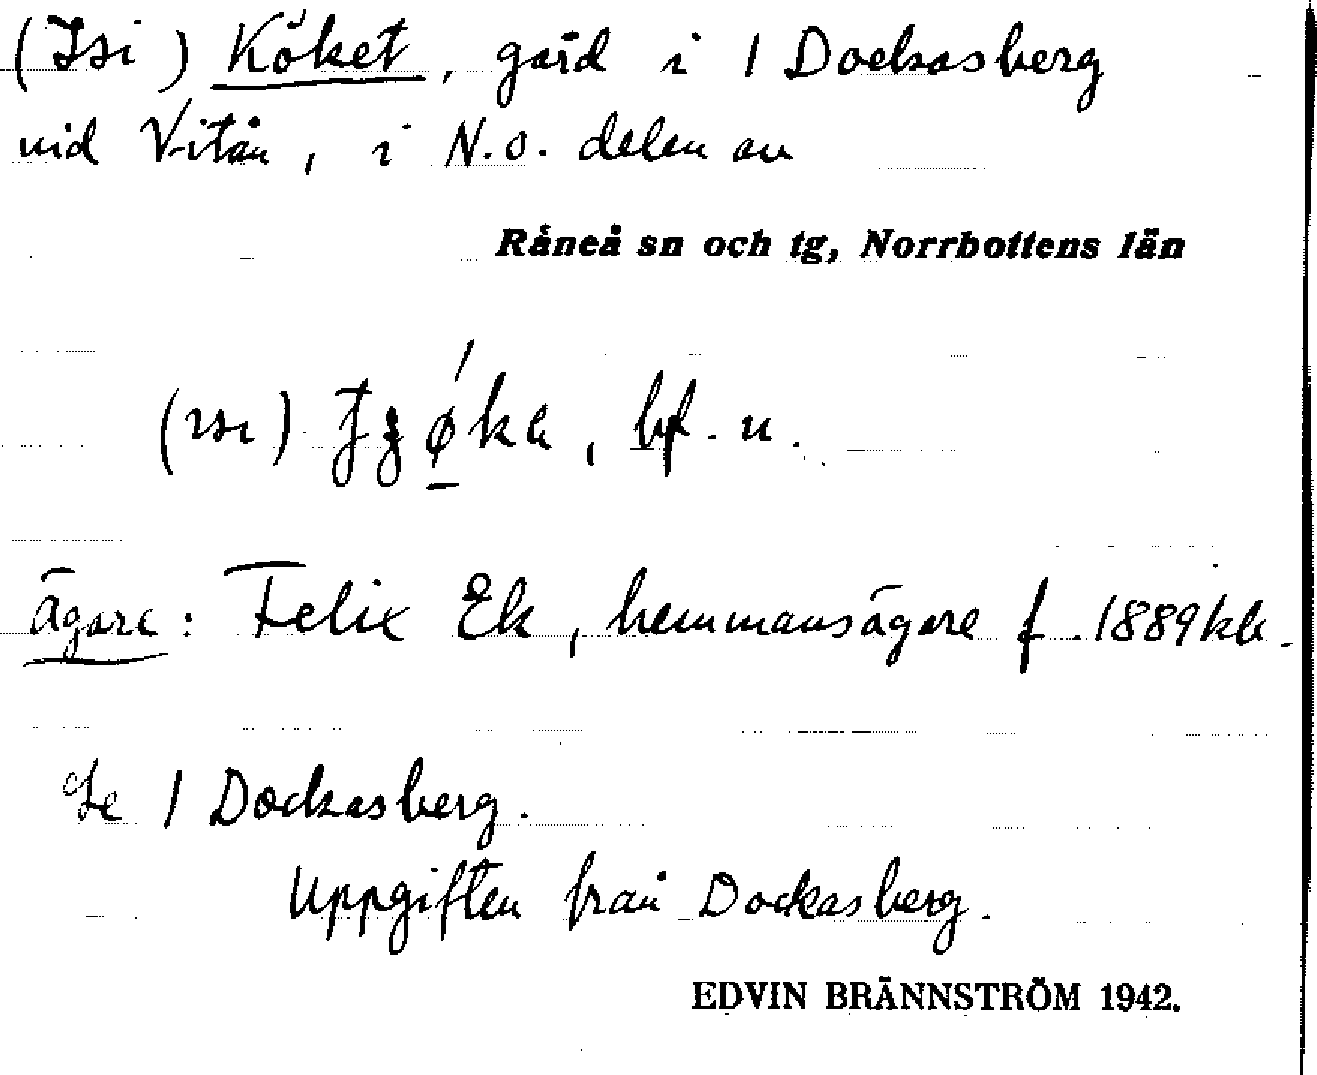 (Isi) Köket, gård i 1 Dockasberg
vid Vitån, i N.O. delen av
Råneå sn och tg, Norrbottens län
bf. n.
Ägare: Felix Ek, hemmansägare f. 1889
Se 1 Dockasberg.
Uppgiften från Dockasberg.
EDVIN BRÄNNSTRÖM 1942.